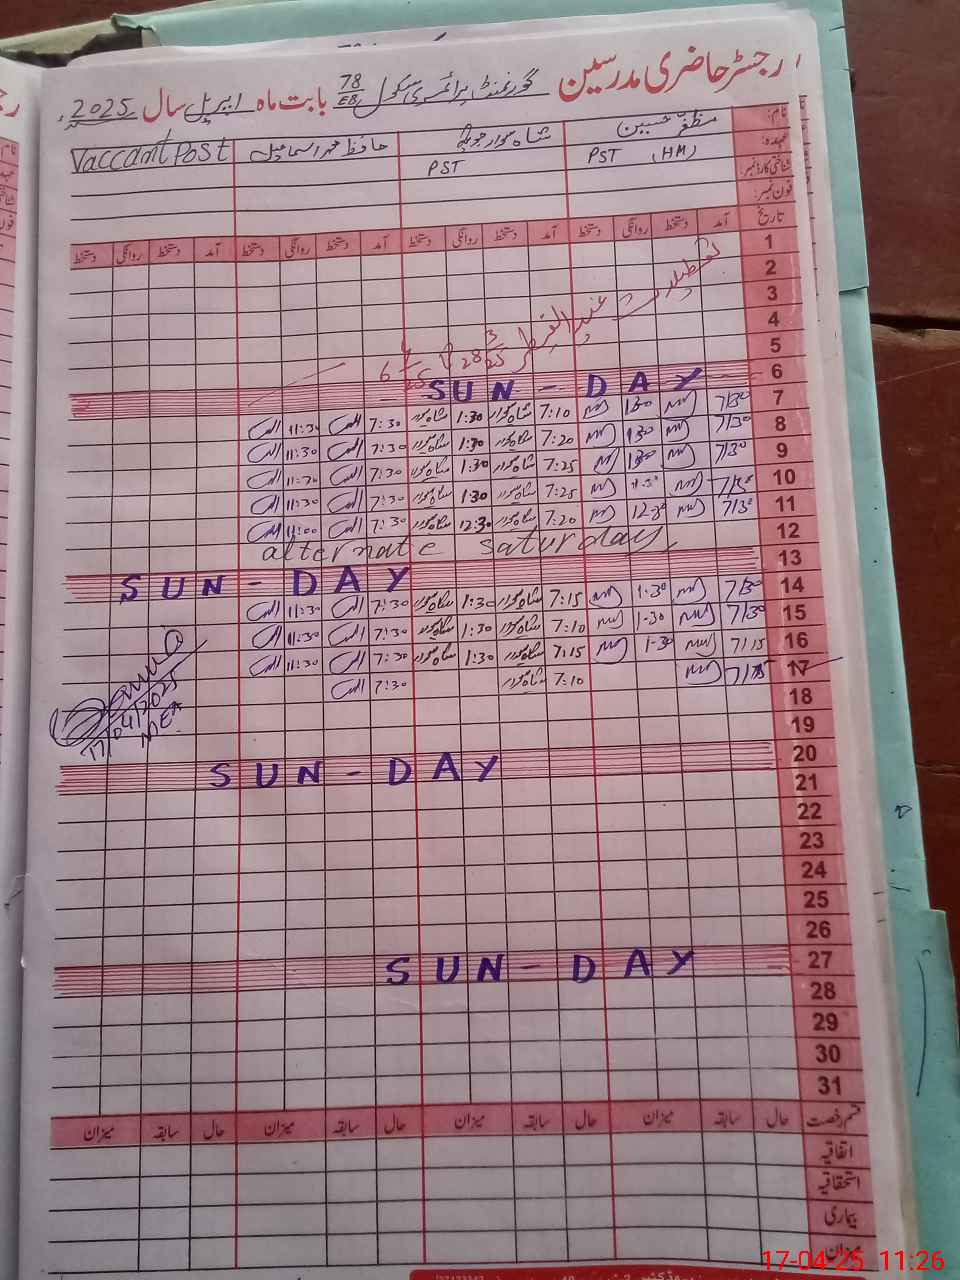 رجسٹر حاضری مدرسین گورنمنٹ پرائمری سکول 78/EB بابت ماہ اپریل سال 2025ء
نام: مظفر حسین شاہ سوار جوئیہ حافظ محمد اسماعیل Vaccant Post
عہدہ: PST (HM) PST
شناختی کارڈ نمبر:
فون نمبر:
تاریخ آمد دستخط روانگی دستخط آمد دستخط روانگی دستخط آمد دستخط روانگی دستخط آمد دستخط روانگی دستخط
1
2
3 تعطیلات عید الفطر
4
5
6 SUN - DAY
7 7/30 1:30 7:10 1:30 7:30 11:30
8 7/30 1:30 7:20 1:30 7:30 11:30
9 7/30 1:30 7:25 1:30 7:30 11:30
10 7:25 1:30 7:30 11:30
11 12:30 7:20 12:30 7:30 11:00
12 alternate saturday
13 SUN - DAY
14 7/30 1-30 7:15 1:30 7:30 11:30
15 7/30 1-30 7:10 1:30 7:30 11:30
16 7/15 1-30 7:15 1:30 7:30 11:30
17 7:10 7:30
17/04/2025
MEA
18
19
20 SUN - DAY
21
22
23
24
25
26
27 SUN - DAY
28
29
30
31
قسم رخصت حال سابقہ میزان حال سابقہ میزان حال سابقہ میزان حال سابقہ میزان
اتفاقیہ
استحقاقیہ
بیماری
میزان
17-04-25 11:26